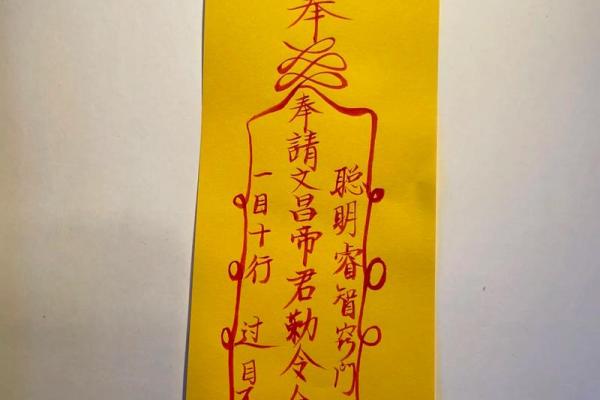 奉
奉請文昌帝君勅令
聪明睿智窍門
一目十行过目